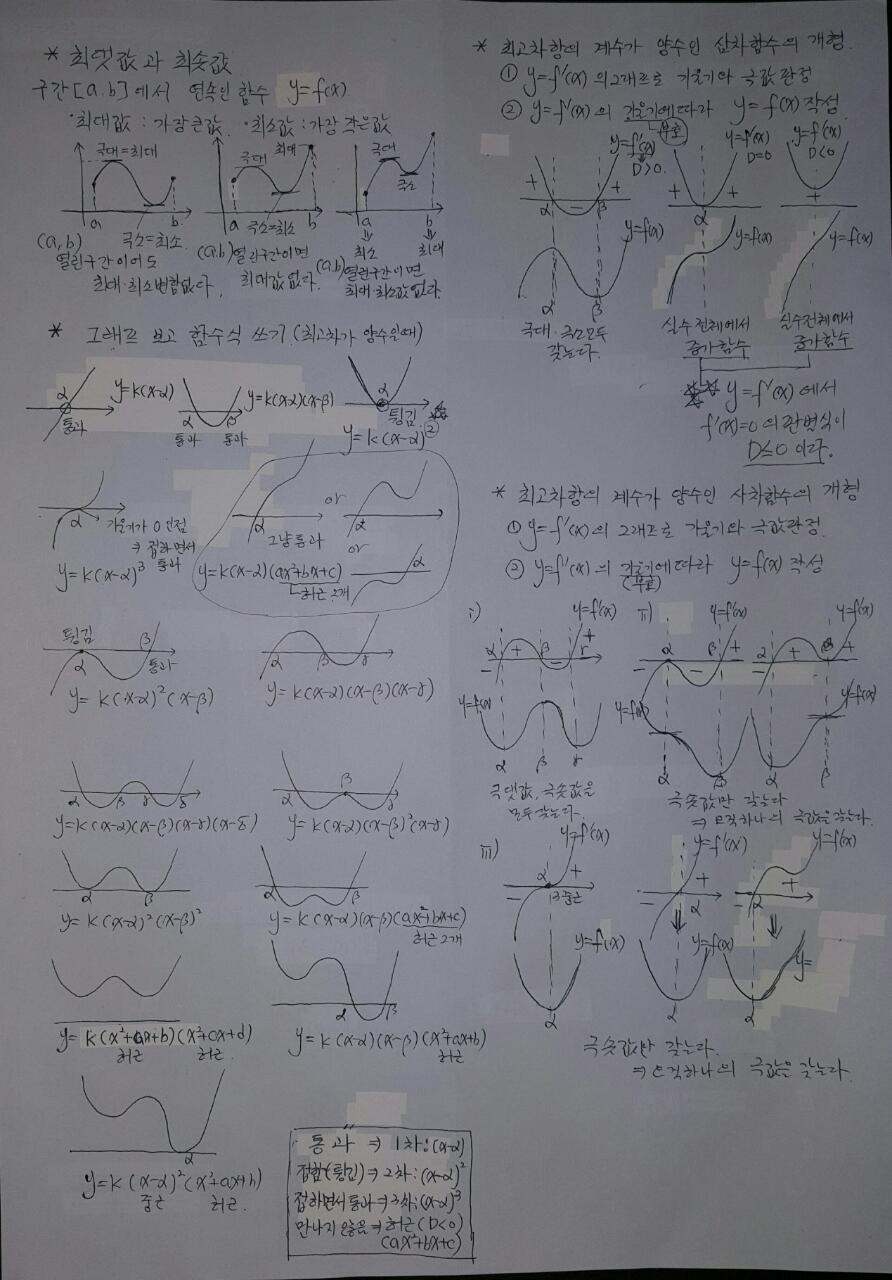 * 최댓값과 최솟값
구간 [a.b]에서 연속인 함수 y=f(x)
·최대값 : 가장 큰 값. ·최소값 : 가장 작은 값
극대=최대
극대 최대
극대
극소
a b
a b
a b
극소=최소.
극소=최소
최소 최대
(a,b)
열린구간이어도
최대·최소변함없다.
(a.b)열린구간이면
최대값 없다.
(a,b)열린구간이면
최대·최소값 없다.
* 그래프 보고 함수식 쓰기.(최고차가 양수일때)
α
통과
y=k(x-α)
α β
통과 통과
y=k(x-α)(x-β)
α
튕김
y=k(x-α)²
α
기울기가 0인점
⇒ 접하면서
통과
y=k(x-α)³
α
그냥통과
or
α
or
α
y=k(x-α)(ax²+bx+c)
허근2개
튕김 β
α 통과
y=k(x-α)²(x-β)
α β γ
y=k(x-α)(x-β)(x-γ)
α β γ δ
y=k(x-α)(x-β)(x-γ)(x-δ)
α β γ
y=k(x-α)(x-β)²(x-γ)
α β
y=k(x-α)²(x-β)²
α β
y=k(x-α)(x-β)(ax²+bx+c)
허근2개
y=k(x²+ax+b)(x²+cx+d)
허근 허근.
α β
y=k(x-α)(x-β)(x²+ax+b)
허근
α
y=k(x-α)²(x²+ax+b)
중근 허근.
통과 ⇒ 1차:(x-α)
접함(튕김)⇒2차:(x-α)²
접하면서 통과⇒3차:(x-α)³
만나지 않음⇒허근(D<0)
(ax²+bx+c)
* 최고차항의 계수가 양수인 삼차함수의 개형.
① y=f'(x)의 그래프로 기울기와 극값 판정
② y=f'(x)의 기울기에따라 y=f(x) 작성.
부호
y=f'(x)
D>0.
+ - +
α β
y=f'(x)
D=0
+ +
α
y=f'(x)
D<0
+
y=f(x)
y=f(x)
y=f(x)
α β
극대·극소모두
갖는다.
실수전체에서
증가함수
실수전체에서
증가함수
y=f'(x)에서
f'(x)=0의 판별식이
D≤0 이다.
* 최고차항의 계수가 양수인 사차함수의 개형
① y=f'(x)의 그래프로 기울기와 극값판정.
② y=f'(x)의 기울기에따라 y=f(x) 작성
(부호)
i)
y=f'(x)
α + β - γ +
-
y=f(x)
α β γ
극댓값, 극솟값을
모두갖는다.
ii)
y=f'(x)
α β +
- -
y=f'(x)
α + β
- +
y=f(x)
y=f(x)
α β α β
극솟값만 갖는다
⇒ 오직하나의 극값을 갖는다.
iii)
y=f'(x)
α +
- 삼중근
y=f'(x)
+
- α
y=f'(x)
+
- α
y=f(x)
y=f(x)
y=
α α α
극솟값만 갖는다.
⇒ 오직하나의 극값을 갖는다.